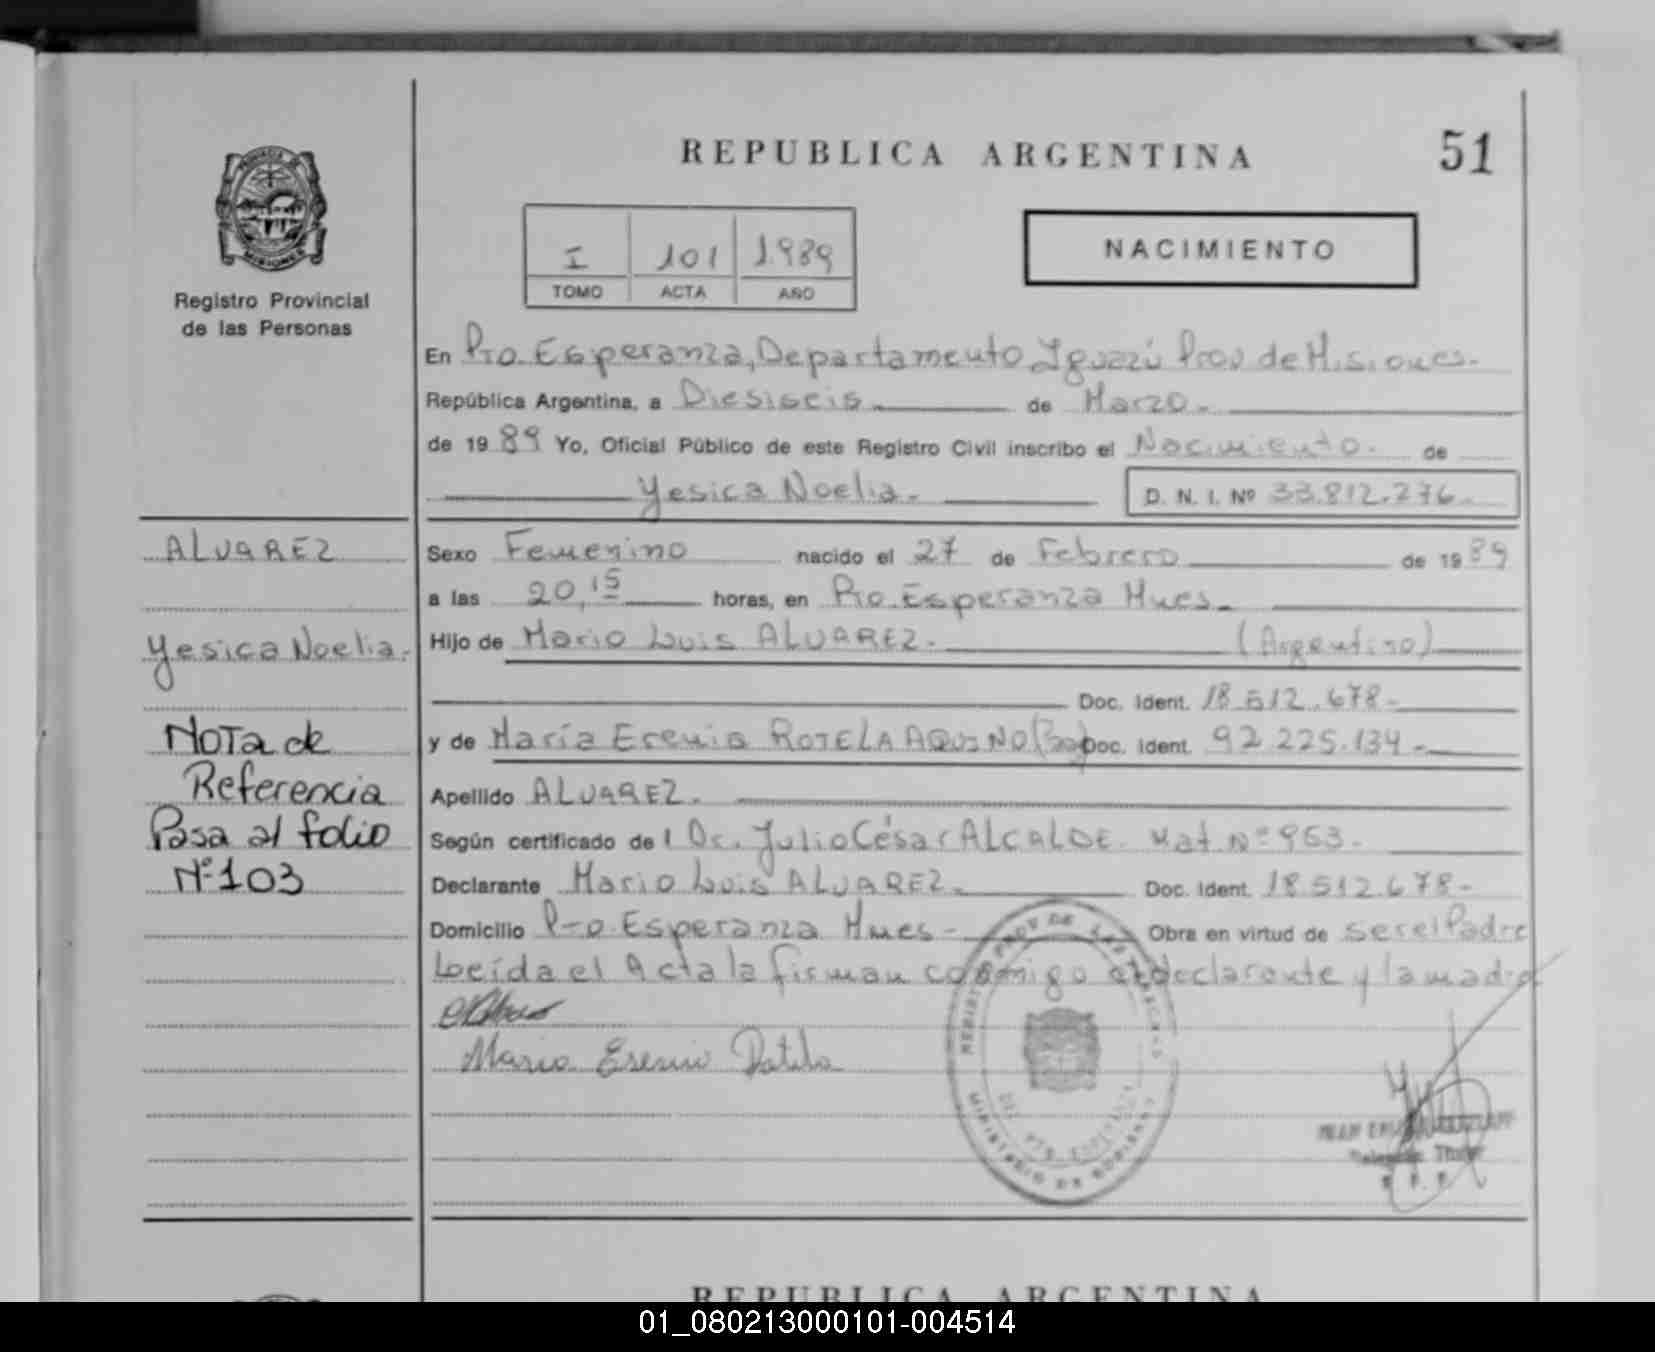 REPUBLICA ARGENTINA
51
PROVINCIA DE
MISIONES
Registro Provincial
de las Personas
I 101 1.989
TOMO ACTA AÑO
NACIMIENTO
En Pto. Esperanza, Departamento Iguazú Prov de Misiones.
República Argentina, a Diesiseis de Marzo.
de 1989 Yo, Oficial Público de este Registro Civil inscribo el Nacimiento. de
Yesica Noelia. D. N. I. Nº 33.812.276.
ALVAREZ
Yesica Noelia.
Nota de
Referencia
Pasa al folio
Nº 103
Sexo Femenino nacido el 27 de Febrero de 1989
a las 20,15 horas, en Pto. Esperanza Mnes.
Hijo de Mario Luis ALVAREZ. (Argentino)
Doc. Ident. 18.512.678-
y de María Erenia ROTELA AQUINO Doc. Ident. 92.225.134-
Apellido ALVAREZ.
Según certificado del Dr. Julio César ALCALDE. Mat Nº 963.
Declarante Mario Luis ALVAREZ. Doc. Ident. 18.512.678-
Domicilio Pto. Esperanza Mnes- Obra en virtud de ser el Padre
Leída el Acta la firman conmigo el declarante y la madre
MINISTERIO DE GOBIERNO
REPUBLICA ARGENTINA
01_080213000101-004514